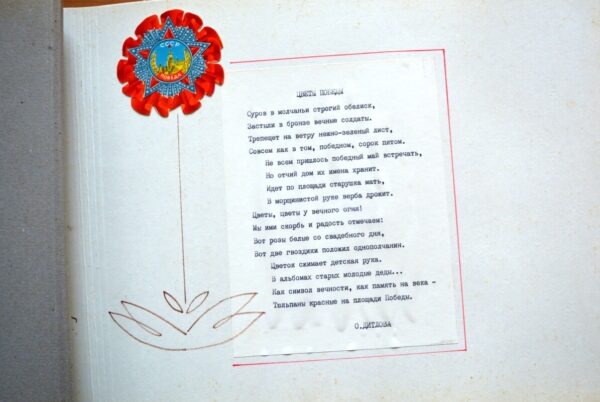 СССР
ПОБЕДА
ЦВЕТЫ ПОБЕДЫ
Суров в молчаньи строгий обелиск,
Застыли в бронзе вечные солдаты.
Трепещет на ветру нежно-зеленый лист,
Совсем как в том, победном, сорок пятом.
Не всем пришлось победный май встречать,
Но отчий дом их имена хранит.
Идет по площади старушка мать,
В морщинистой руке верба дрожит.
Цветы, цветы у вечного огня!
Мы ими скорбь и радость отмечаем:
Вот розы белые со свадебного дня,
Вот две гвоздики положил однополчанин.
Цветок сжимает детская рука.
В альбомах старых молодые деды...
Как символ вечности, как память на века -
Тюльпаны красные на площади Победы.
О.ДИТЛОВА